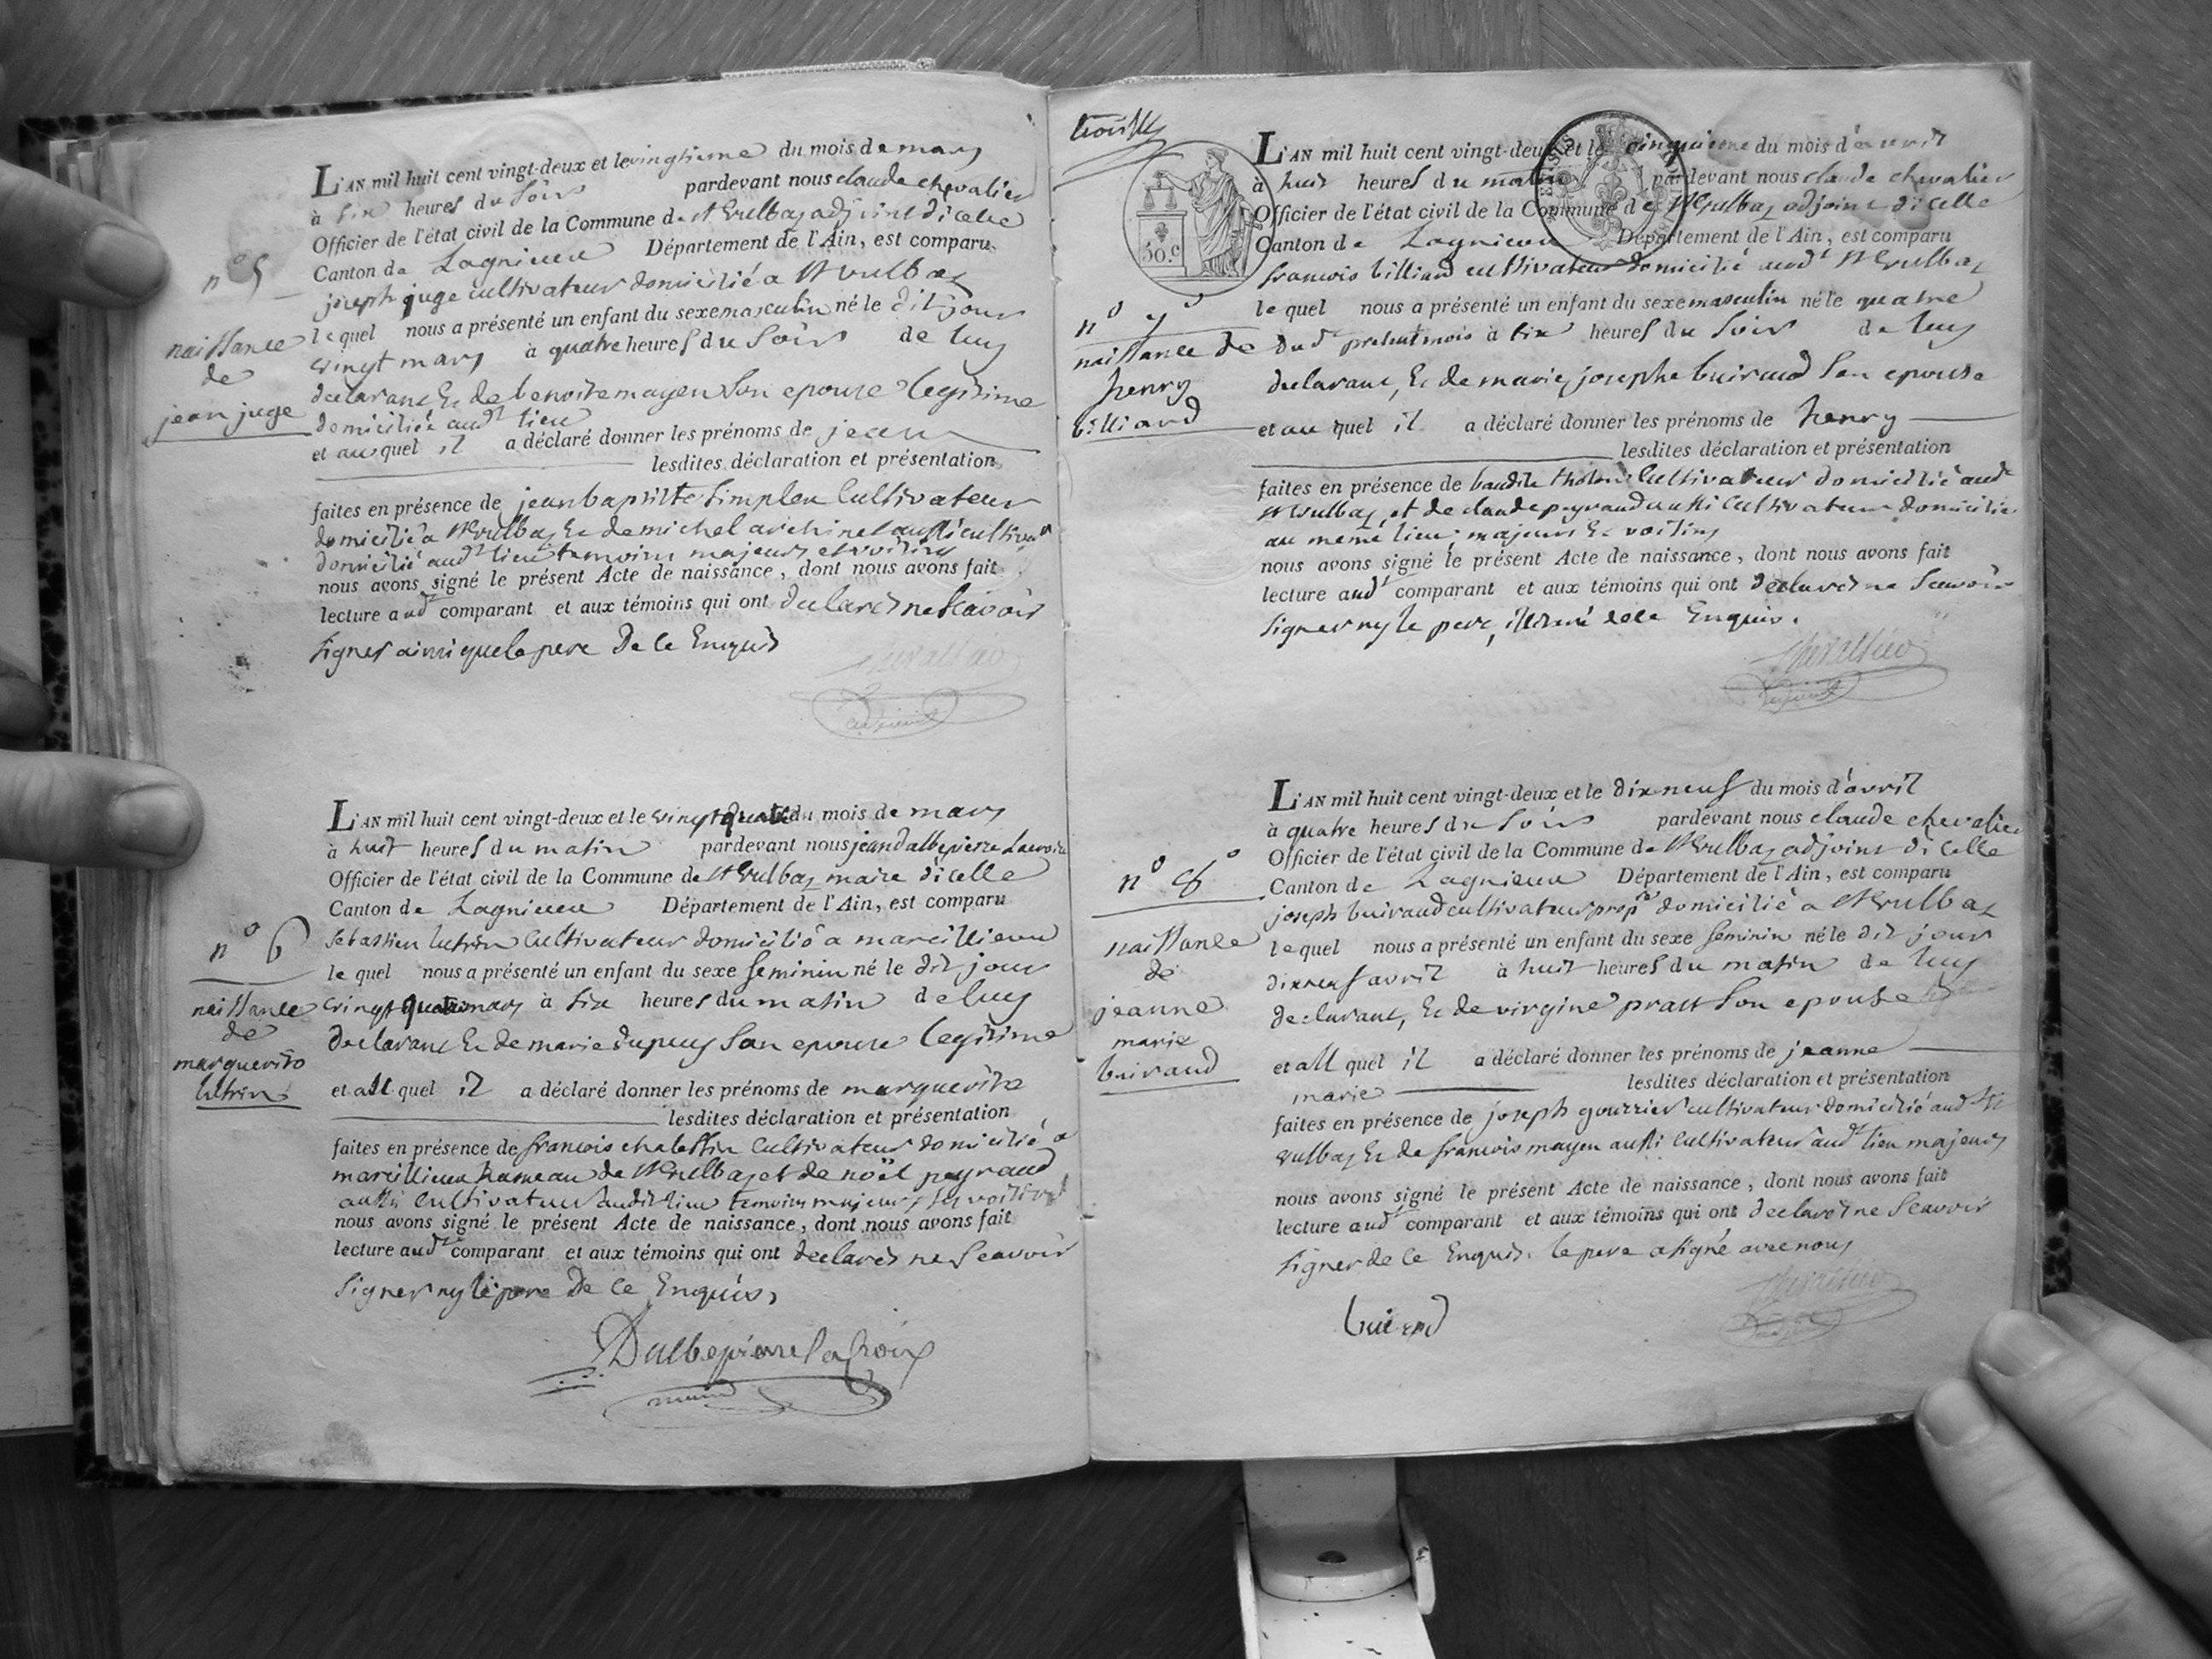 n° 5
naissance
de
jean juge
L'AN mil huit cent vingt-deux et le vingtieme du mois de mars
à six heures du soir pardevant nous claude chevalier
Officier de l'état civil de la Commune de St Vulbas adjoint d'icelle
Canton de Lagnieu Département de l'Ain, est comparu
joseph juge cultivateur domicilié a St vulbas
le quel nous a présenté un enfant du sexe masculin né le dit jour
vingt mars à quatre heures du soir de luy
declarant & de benoite mayen son epouse legitime
domiciliée audt lieu
et au quel il a déclaré donner les prénoms de jean
lesdites déclaration et présentation
faites en présence de jean baptiste simplex cultivateur
domicilié a St vulbas & de michel archinet aussi cultivateur
domicilié audt lieu temoins majeurs et voisins
nous avons signé le présent Acte de naissance, dont nous avons fait
lecture audt comparant et aux témoins qui ont declarés ne scavoir
signer ainsi que le pere de ce Enquis
chevallier
adjoint
n° 6
naissance
de
marguerite
lutrin
L'AN mil huit cent vingt-deux et le vingt quatre du mois de mars
à huit heures du matin pardevant nous jean dalbepierre Lacroix
Officier de l'état civil de la Commune de St Vulbas maire d'icelle
Canton de Lagnieu Département de l'Ain, est comparu
sebastien lutrin cultivateur domicilié a marcillieux
le quel nous a présenté un enfant du sexe feminin né le dit jour
vingt quatre mars à six heures du matin de luy
declarant & de marie dupuy son epouse legitime
et all quel il a déclaré donner les prénoms de marguerite
lesdites déclaration et présentation
faites en présence de francois cultivateur domicilié a
marcillieux hameau de St Vulbas et de noël peyraud
aussi cultivateur audit lieu temoins majeurs voisins
nous avons signé le présent Acte de naissance, dont nous avons fait
lecture audt comparant et aux témoins qui ont declarés ne scavoir
signer ny le pere de ce Enquis,
Dalbepierre Lacroix
maire
n° 7
naissance de
henry
billiard
50.c
L'AN mil huit cent vingt-deux et le cinquieme du mois d'avril
à huit heures du matin pardevant nous claude chevalier
Officier de l'état civil de la Commune de St Vulbas adjoint d'icelle
Canton de Lagnieu Département de l'Ain, est comparu
francois billiard cultivateur domicilié audt St Vulbas
le quel nous a présenté un enfant du sexe masculin né le quatre
dudt present mois à six heures du soir de luy
declarant, & de marie josephe buiraud son epouse
et au quel il a déclaré donner les prénoms de henry
lesdites déclaration et présentation
faites en présence de baudile cultivateur domicilié audt
St Vulbas et de claude peyraud aussi cultivateur domicilié
au meme lieu, majeurs & voisins
nous avons signé le présent Acte de naissance, dont nous avons fait
lecture audt comparant et aux témoins qui ont declarés ne scavoir
signer ny le pere, de ce Enquis.
chevallier
adjoint
n° 8
naissance
de
jeanne
marie
buiraud
L'AN mil huit cent vingt-deux et le dixneuf du mois d'avril
à quatre heures du soir pardevant nous claude chevalier
Officier de l'état civil de la Commune de St Vulbas adjoint d'icelle
Canton de Lagnieu Département de l'Ain, est comparu
joseph buiraud cultivateur propre domicilié a St Vulbas
le quel nous a présenté un enfant du sexe feminin né le dit jour
dixneuf avril à huit heures du matin de luy
declarant, & de virgine prast son epouse
et all quel il a déclaré donner les prénoms de jeanne
marie lesdites déclaration et présentation
faites en présence de joseph gourrier cultivateur domicilié audt St
vulbas & de francois mayen aussi cultivateur audt lieu majeurs
nous avons signé le présent Acte de naissance, dont nous avons fait
lecture audt comparant et aux témoins qui ont declarés ne scavoir
signer de ce Enquis. le pere a signé avec nous
chevallier
adjoint